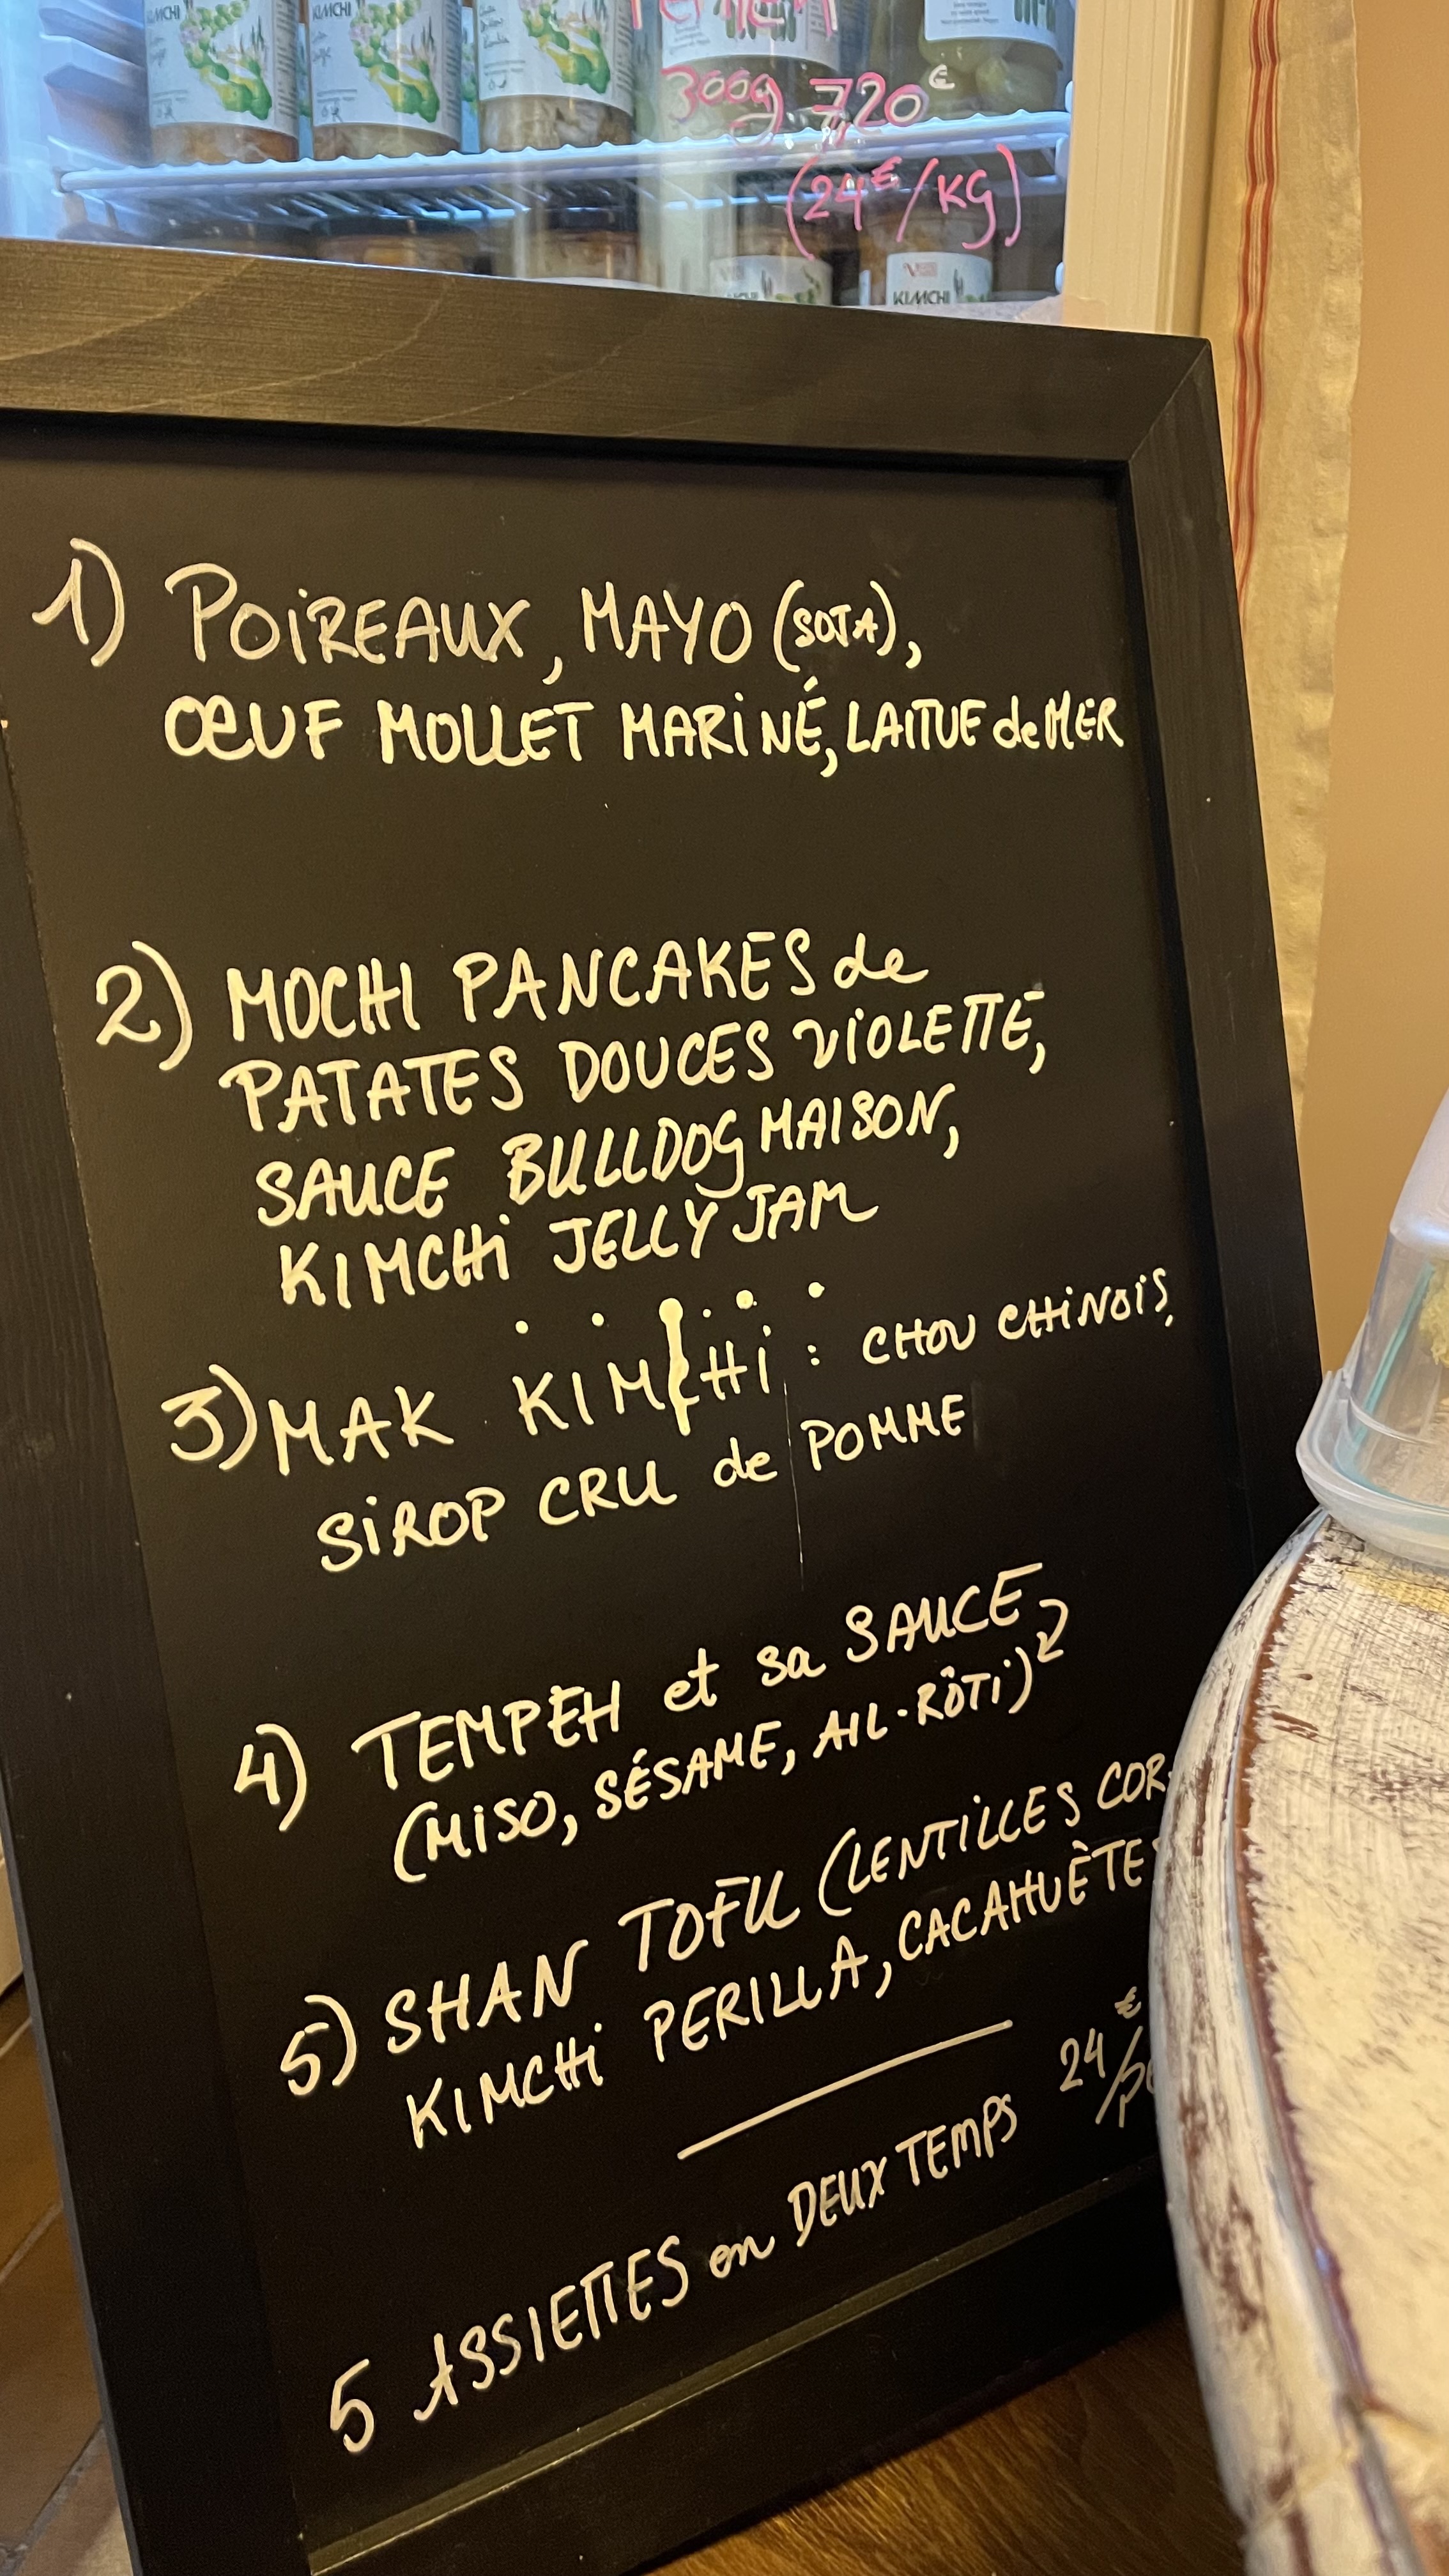 KIMCHI
KIMCHI
300g 7,20€
(24€/KG)
KIMCHI
KIMCHI
1) POIREAUX, MAYO (SOJA),
ŒUF MOLLET MARINÉ, LAITUE de MER
2) MOCHI PANCAKES de
PATATES DOUCES VIOLETTE,
SAUCE BULLDOG MAISON,
KIMCHI JELLY JAM
3) MAK KIMCHI : CHOU CHINOIS,
SIROP CRU de POMME
4) TEMPEH et sa SAUCE
(MISO, SÉSAME, AIL-RÔTI)
5) SHAN TOFU (LENTILLES COR
KIMCHI PERILLA, CACAHUÈTE
24€/
5 ASSIETTES en DEUX TEMPS